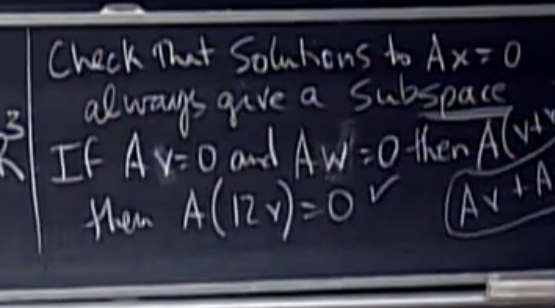 Check that solutions to Ax=0
always give a subspace
3
If Av=0 and Aw=0 then A(v+
then A(12v)=0 ✓
Av+A